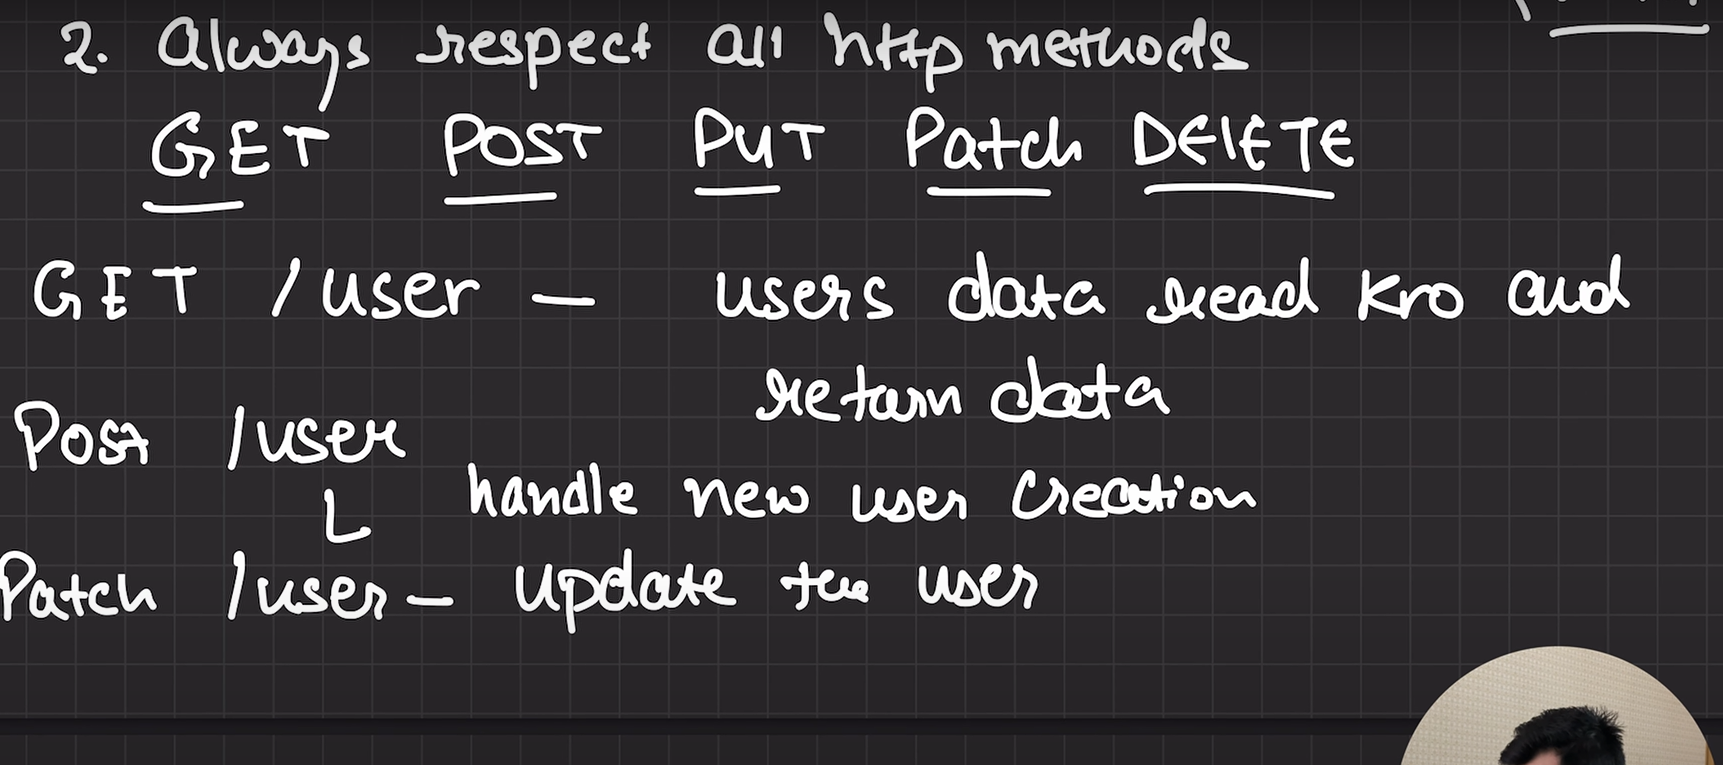 2. Always respect all http methods
GET POST PUT Patch DELETE
GET /user — users data read kro and
return data
Post /user
handle new user creation
Patch /user — update the user